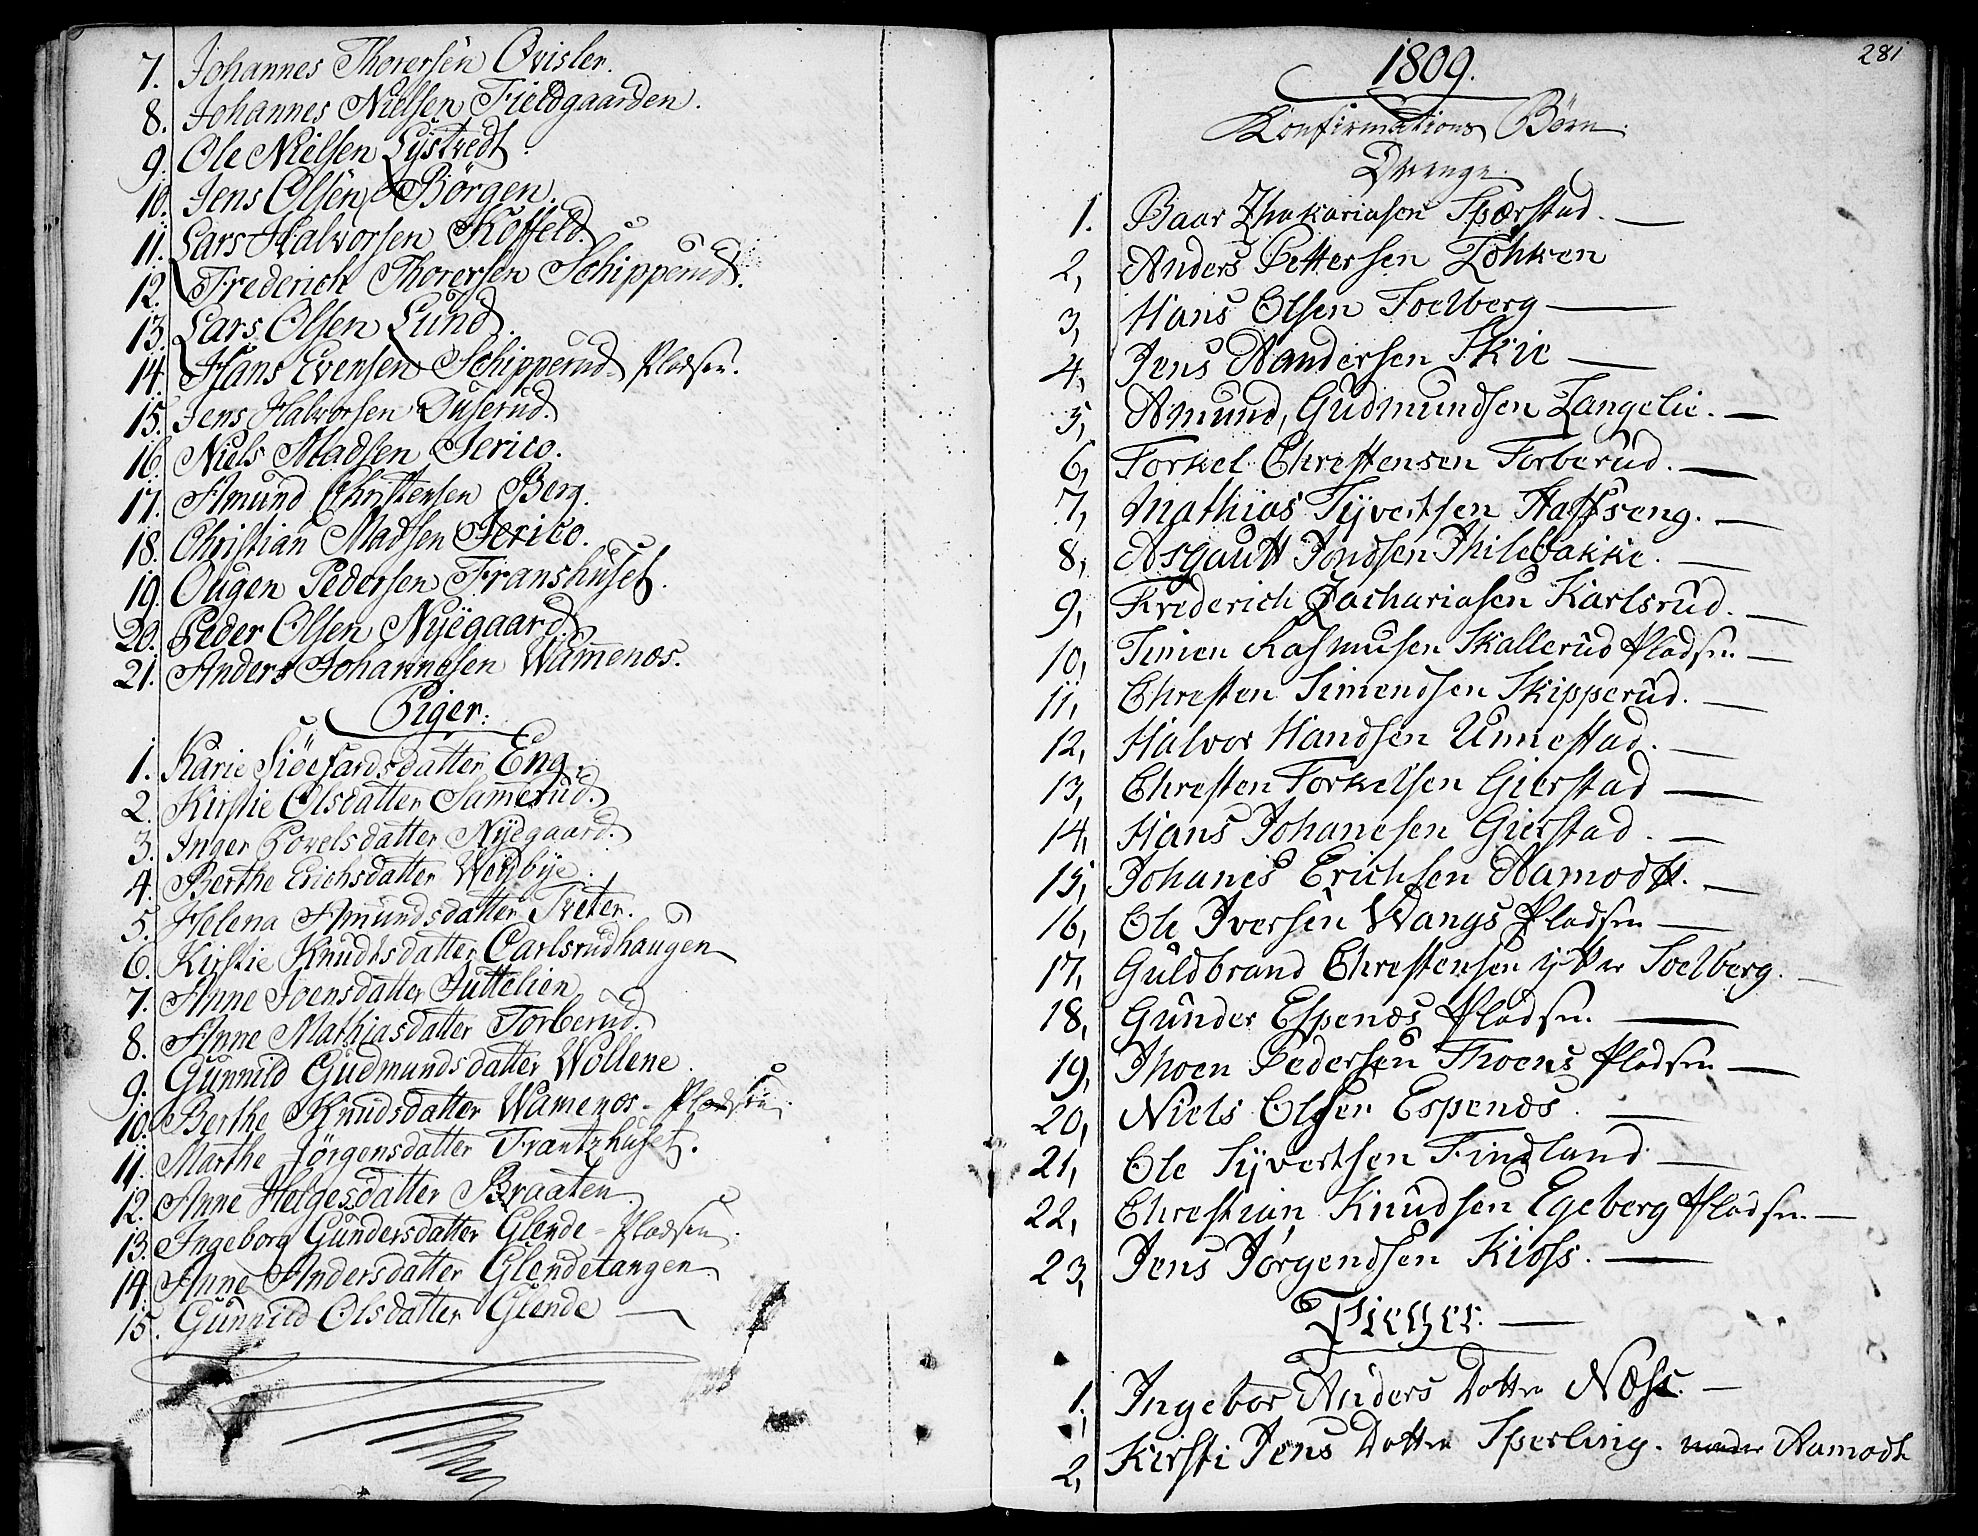 7. Johannes Thorersen Qvisler.
8. Johannes Nielsen Fieldgaarden.
9. Ole Nielsen Lystvedt.
10. Jens Olsen Börgen.
11. Lars Halvorsen Koffeld.
12. Frederich Thorersen Schipperud.
13. Lars Olsen Lund.
14. Hans Evensen Schipperud Pladsen.
15. Jens Halvorsen Duserud.
16. Niels Madsen Jerico.
17. Amund Christensen Berg.
18. Christian Madsen Jerico.
19. Ougen Pedersen Franshuset.
20. Peder Olsen Nyegaard.
21. Anders Johannesen Wam̄enæs.
Piger:
1. Karie Siöefardsdatter Eng.
2. Kirstie Olsdatter Sam̄erud.
3. Inger Povelsdatter Nyegaard.
4. Berthe Erichsdatter Westbye.
5. Helena Amundsdatter Tveter.
6. Kirstie Knudtsdatter Carlsrudhaugen
7. Anne Joensdatter Juttelien
8. Anne Mathiasdatter Torberud.
9. Gunnild Gudmundsdatter Wollene.
10. Berthe Knudsdatter Wamenæs - Pladsen.
11. Marthe Jörgensdatter Frantzhuset.
12. Anne Helgesdatter Braaten.
13. Ingeborg Gundersdatter Glende - Pladsen.
14. Anne Andersdatter Glendetangen.
15. Gunnild Olsdatter Glende —
281
1809.
Konfirmations Börn.
Drenge
1. Baar Zhakariasen Spærstad. —
2, Anders Pettersen Løhken
3, Hans Olsen Soelberg —
4, Jens Aandersen Skie —
5, Amund, Gudmundsen Langelie. —
6, Torkel Chrestensen Torberud. —
7, Mathias Syvertsen Haffseng. —
8, Asgautt Jondsen Philebakke. —
9, Frederich Zachariasen Karlsrud. —
10, Simen Rasmusen Skallerud Pladsen —
11, Chresten Simendsen Skipperud. —
12, Halvor Handsen Unnestad. —
13, Chresten Torkelsen Gierstad —
14, Hans Johanesen Gierstad. —
15, Johanes Erichsen Aamodtt. —
16, Ole Iversen Wangs Pladsen —
17, Guldbrand Chrestensen ytter Soelberg. —
18, Gunder Espenæs Pladsen. —
19, Thoen Pedersen Thoens Pladsen —
20, Niels Olsen Espenæs. —
21, Ole Syvertsen Findland —
22, Chrestian Knudsen Egeberg Pladsen —
23, Jens Jørgendsen Kioss. —
Pieger. —
1. Ingebor Anders Dotter Næss. —
2, Kirsti Jens Dotter Sperling. under Aamodt